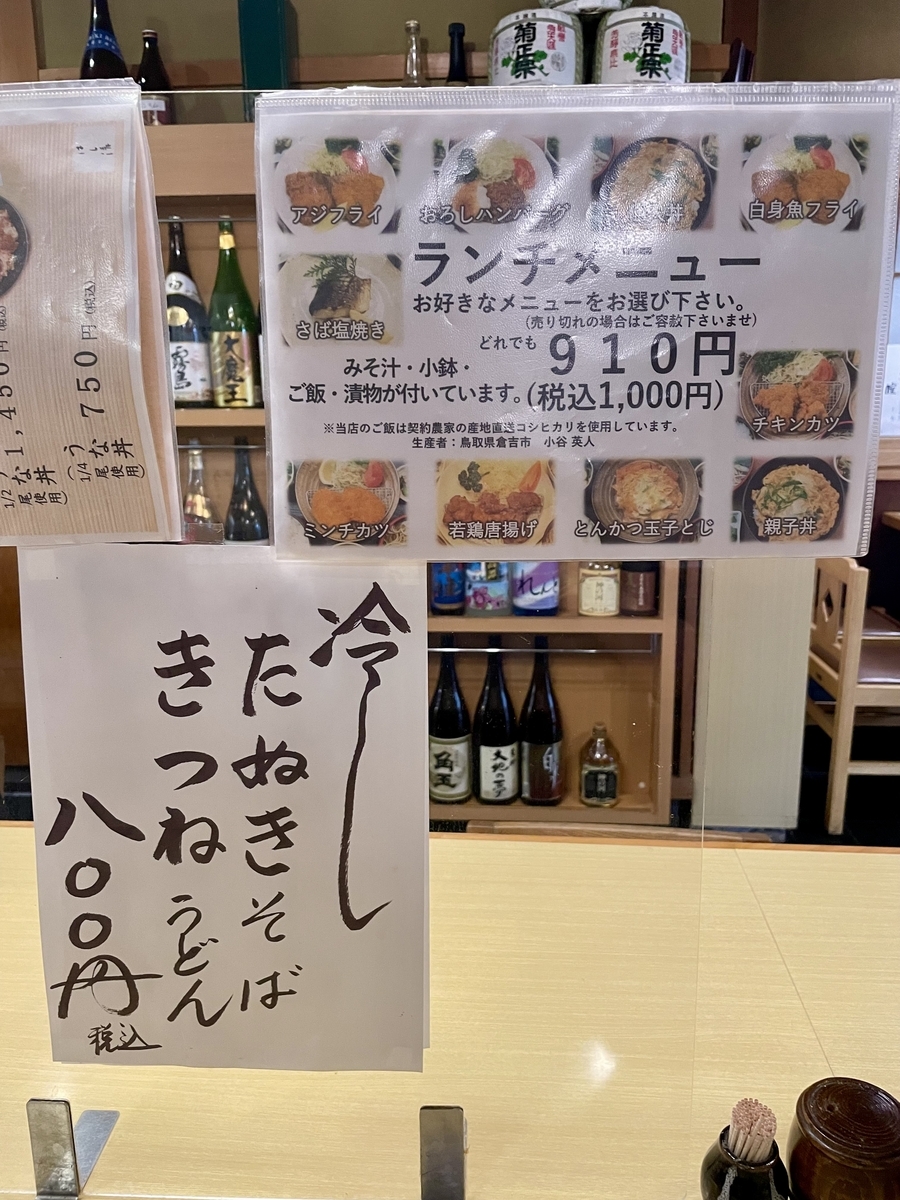 菊正宗
菊正宗
アジフライ
おろしハンバーグ
丼
白身魚フライ
さば塩焼き
ランチメニュー
お好きなメニューをお選び下さい。
(売り切れの場合はご容赦下さいませ)
どれでも 910円
(税込1,000円)
みそ汁・小鉢・
ご飯・漬物が付いています。
※当店のご飯は契約農家の産地直送コシヒカリを使用しています。
生産者:鳥取県倉吉市 小谷 英人
チキンカツ
ミンチカツ
若鶏唐揚げ
とんかつ玉子とじ
親子丼
うな丼
(1/4尾使用)
750円(税込)
うな丼
(1/2尾使用)
1,450円(税込)
霧島
大魔王
冷し
たぬきそば
きつねうどん
八〇〇円
税込
れんと
角玉